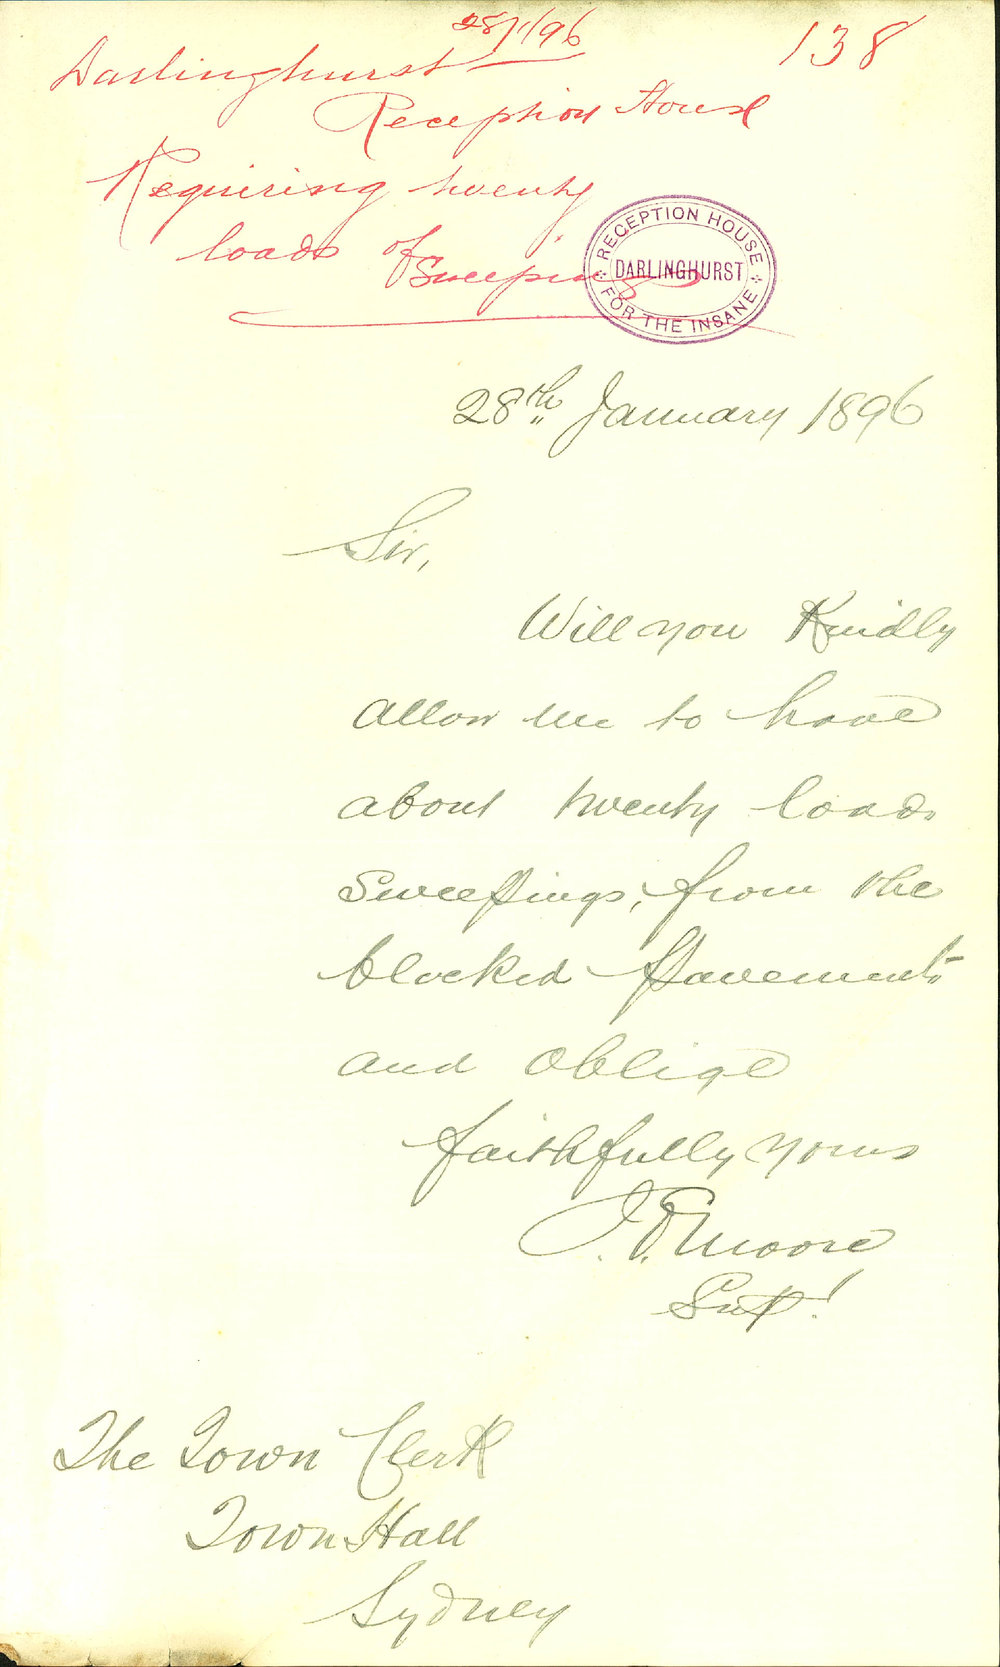 28/1/96
138
Darlinghurst
Reception House
Requiring twenty
loads of
Sweepings
RECEPTION HOUSE
DARLINGHURST
FOR THE INSANE
28th January 1896
Sir,
Will you Kindly
allow me to have
about twenty loads
Sweepings, from the
blocked pavements
and oblige
faithfully yours
J. D. Moore
Supt.
The Town Clerk
Town Hall
Sydney